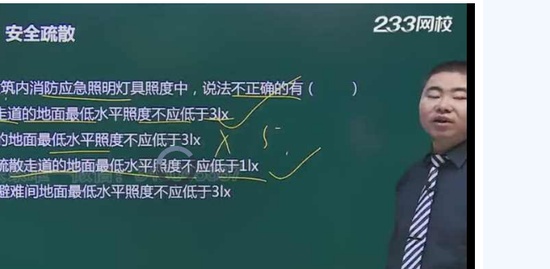 安全疏散
233网校
筑内消防应急照明灯具照度中，说法不正确的有（ ）
走道的地面最低水平照度不应低于3lx
的地面最低水平照度不应低于3lx
5
疏散走道的地面最低水平照度不应低于1lx
避难间地面最低水平照度不应低于3lx